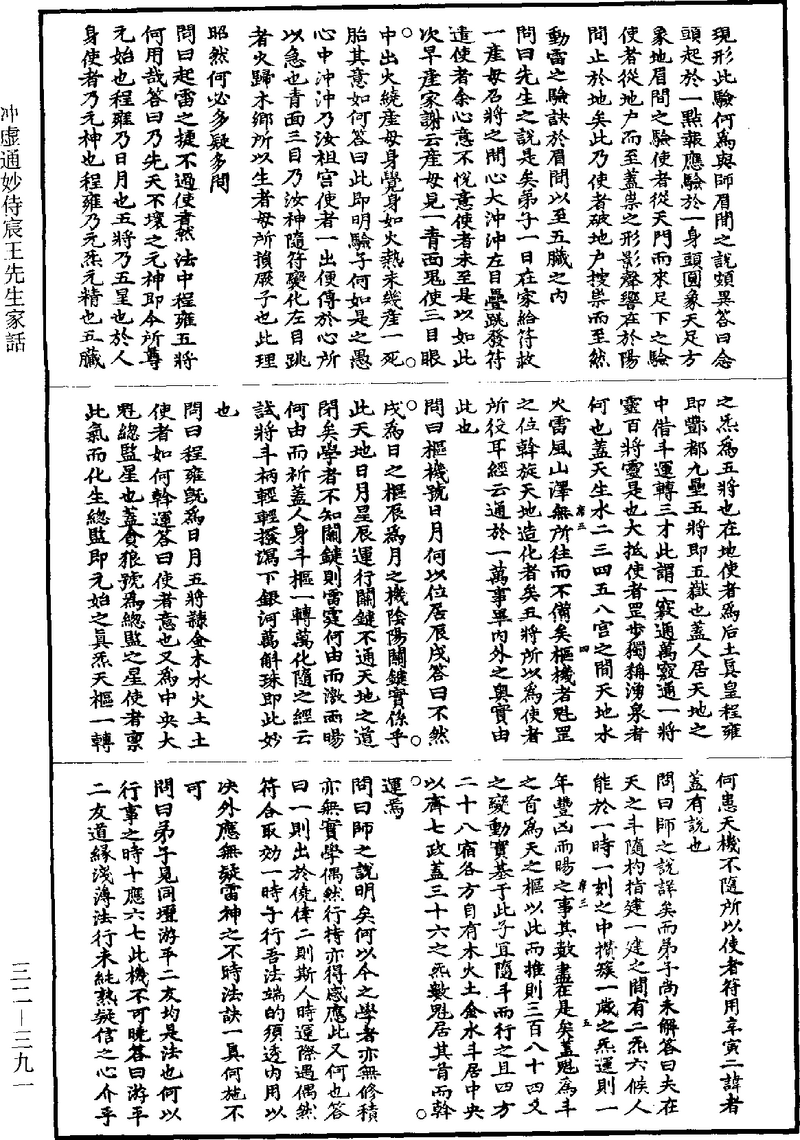 現形此驗何為與師眉間之說頗異答曰念
頭起於一點報應驗於一身頭圓象天足方
象地眉間之驗使者從天門而來足下之驗
使者從地戶而至蓋祟之形影聲響在於陽
間止於地矣此乃使者破地戶搜祟而至然
動雷之驗訣於眉間以至五臟之內
問曰先生之說是矣弟子一日在家給符故
一產母召將之間心大沖沖左目疊跳發符
遣使者余心意不悅意使者未至是以如此
次早產家謝云產母見一青面鬼使三目眼
中出火繞產母身覺身如火熱未幾產一死
胎其意如何答曰此即明驗子何如是之愚
心中沖沖乃汝祖宮使者一出便傳於心所
以急也青面三目乃汝神隨符變化左目跳
者火歸木鄉所以生者母所損厥子也此理
昭然何必多疑多問
問曰起雷之捷不過使者然法中程雍五將
何用哉答曰乃先天不壞之元神即今所尊
元始也程雍乃日月也五將乃五星也於人
身使者乃元神也程雍乃元炁元精也五臟
之炁為五將也在地使者為后土真皇程雍
即酆都九壘五將即五嶽也蓋人居天地之
中借斗運轉三才此謂一竅通萬竅通一將
靈百將靈是也大抵使者罡步獨稱湧泉者
何也蓋天生水二三四五八宮之間天地水
火雷風山澤無所往而不備矣樞機者魁罡
之位斡旋天地造化者矣五將所以為使者
所役耳經云通於一萬事畢內外之奧實由
此也
問曰樞機號日月何以位居辰戌答曰不然
戌為日之樞辰為月之機陰陽關鍵實係乎
此天地日月星辰運行關鍵不通天地之道
閉矣學者不知關鍵則雷霆何由而激雨暘
何由而祈蓋人身斗樞一轉萬化隨之經云
試將斗柄輕輕撥瀉下銀河萬斛珠即此妙
也
問曰程雍既為日月五將隸金木水火土土
使者如何斡運答曰使者意也又為中央大
魁總監星也蓋貪狼號為總監之星使者稟
此氣而化生總監即元始之真炁天樞一轉
何患天機不隨所以使者符用辛寅二諱者
蓋有說也
問曰師之說詳矣而弟子尚未解答曰夫在
天之斗隨杓指建一建之間有二炁六候人
能於一時一刻之中攢簇一歲之炁運則一
年豐凶雨暘之事其數盡在是矣蓋魁為斗
之首為天之樞以此而推則三百八十四爻
之變動實基于此子宜隨斗而行之且四方
二十八宿各方自有木火土金水斗居中央
以齊七政蓋三十六之炁數魁居其首而斡
運焉
問曰師之說明矣何以今之學者亦無修積
亦無實學偶然行持亦得感應此又何也答
曰一則出於僥倖二則斯人時運際遇偶然
符合取効一時乎行吾法端的須透內用以
決外應無疑雷神之不時法訣一真何施不
可
問曰弟子見同壇游平二友均是法也何以
行事之時十應六七此機不可曉答曰游平
二友道緣淺薄法行未純熟疑信之心介乎
席五
四
席三
五
冲虛通妙侍宸王先生家話
三二—三九一